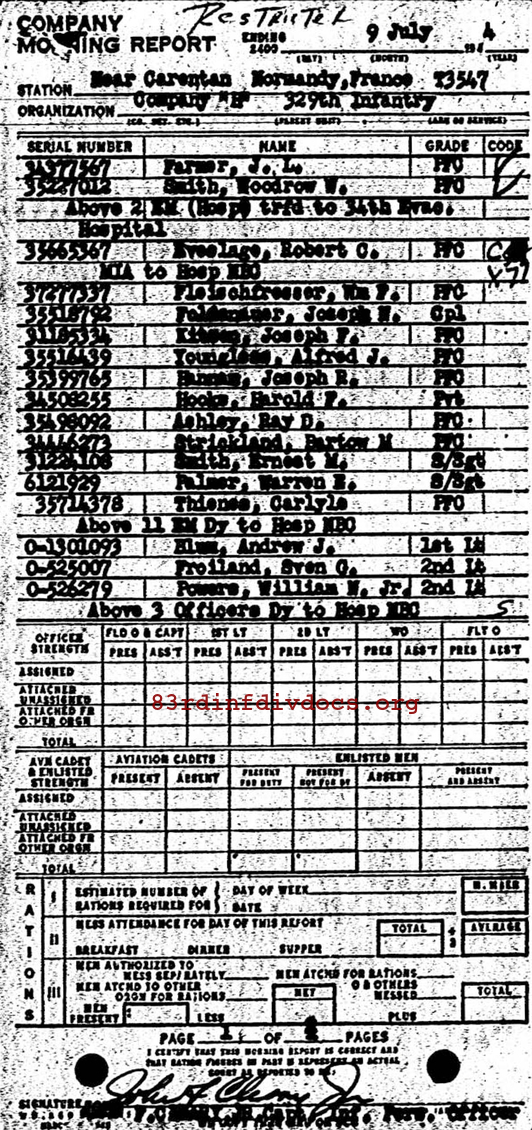 COMPANY
MORNING REPORT
RESTRICTED
ENDING 2400 9 July 194 4
(DAY) (MONTH) (YEAR)
STATION Near Carentan Normandy, France T3547
ORGANIZATION Company "B" 329th Infantry
(CO. DET. ETC.) (PARENT UNIT) (ARM OR SERVICE)
SERIAL NUMBER NAME GRADE CODE
34377567 Farmer, J. L. PFC
35227012 Smith, Woodrow W. PFC
Above 2 EM (Hosp) trfd to 34th Evac.
Hospital
35665367 Eveslage, Robert C. PFC
MIA to Hosp NBC
37277337 Fleischfresser, Wm F. PFC
35518792 Joseph N. Cpl
31185334 Joseph F. PFC
35516439 Alfred J. PFC
35399765 Hannan, Joseph R. PFC
34508255 Hooks, Harold F. Pvt
35498092 Ashley, Ray D. PFC
34446273 Strickland, Bartow M PFC
31224108 Smith, Ernest M. S/Sgt
6121929 Palmer, Warren E. S/Sgt
35714378 Thienes, Carlyle PFC
Above 11 EM Dy to Hosp NBC
O-1301093 Blum, Andrew J. 1st Lt
O-525007 Froiland, Sven G. 2nd Lt
O-526279 Powers, William N, Jr. 2nd Lt
Above 3 Officers Dy to Hosp NBC
OFFICER STRENGTH FLD O & CAPT 1ST LT 2D LT WO FLT O
PRES ABS'T PRES ABS'T PRES ABS'T PRES ABS'T PRES ABS'T
ASSIGNED
ATTACHED UNASSIGNED
ATTACHED FR OTHER ORGN
TOTAL
83rdinfdivdocs.org
AVN CADET & ENLISTED STRENGTH AVIATION CADETS ENLISTED MEN
PRESENT ABSENT PRESENT FOR DUTY PRESENT NOT FOR DY ABSENT PRESENT AND ABSENT
ASSIGNED
ATTACHED UNASSIGNED
ATTACHED FR OTHER ORGN
TOTAL
RATIONS
I ESTIMATED NUMBER OF RATIONS REQUIRED FOR DAY OF WEEK
DATE
NUMBER
II MESS ATTENDANCE FOR DAY OF THIS REPORT TOTAL ÷ 3 AVERAGE
BREAKFAST DINNER SUPPER
III MEN AUTHORIZED TO MESS SEPARATELY MEN ATCHD FOR RATIONS
MEN ATCHD TO OTHER ORGN FOR RATIONS NET OTHERS MESSED TOTAL
MEN PRESENT LESS PLUS
PAGE 1 OF PAGES
I CERTIFY THAT THIS MORNING REPORT IS CORRECT AND
THAT RATION FIGURES IN PART III REPRESENT AN ACTUAL
COUNT AS REPORTED TO ME.
SIGNATURE
Capt Inf. Pers. Officer